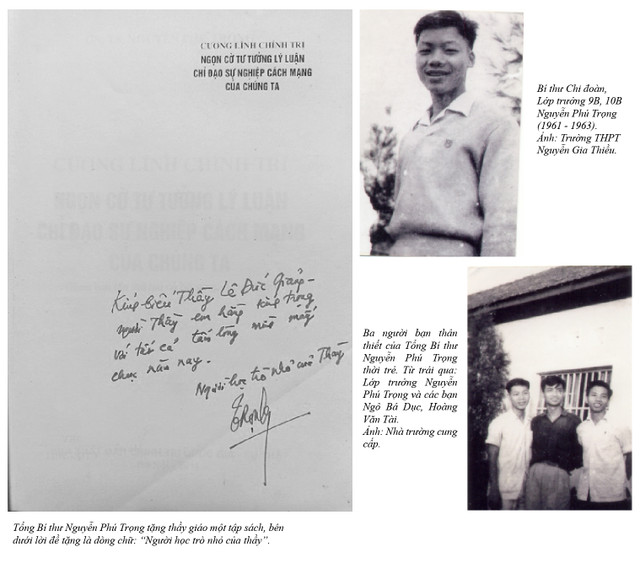 CƯƠNG LĨNH CHÍNH TRỊ
NGỌN CỜ TƯ TƯỞNG LÝ LUẬN
CHỈ ĐẠO SỰ NGHIỆP CÁCH MẠNG
CỦA CHÚNG TA
Kính biếu Thầy Lê Đức Giảng -
người Thầy em hằng kính trọng
với tất cả tấm lòng
năm nay.
Người học trò nhỏ của Thầy
Trọng
Tổng Bí thư Nguyễn Phú Trọng tặng thầy giáo một tập sách, bên
dưới lời đề tặng là dòng chữ: “Người học trò nhỏ của thầy”.
Bí thư Chi đoàn,
Lớp trưởng 9B, 10B
Nguyễn Phú Trọng
(1961 - 1963).
Ảnh: Trường THPT
Nguyễn Gia Thiều.
Ba người bạn thân
thiết của Tổng Bí thư
Nguyễn Phú Trọng
thời trẻ. Từ trái qua:
Lớp trưởng Nguyễn
Phú Trọng và các bạn
Ngô Bá Dục, Hoàng
Văn Tài.
Ảnh: Nhà trường cung
cấp.